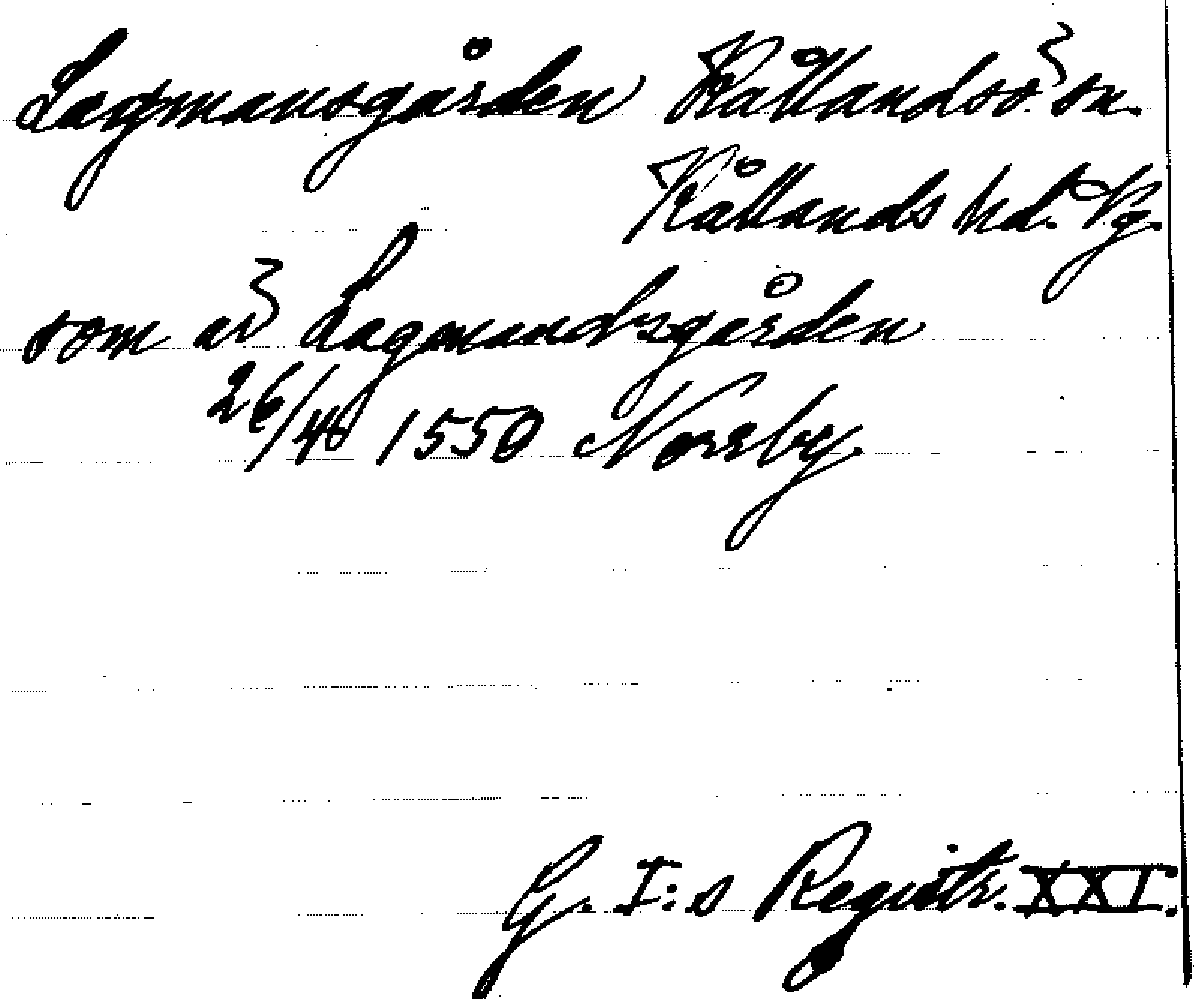 Lagmansgården Kållandsö sn.
Kållands hd. Vg.
som är Lagmandsgården
26/4 1550 Norsby
G. I:s Registr. XXI.